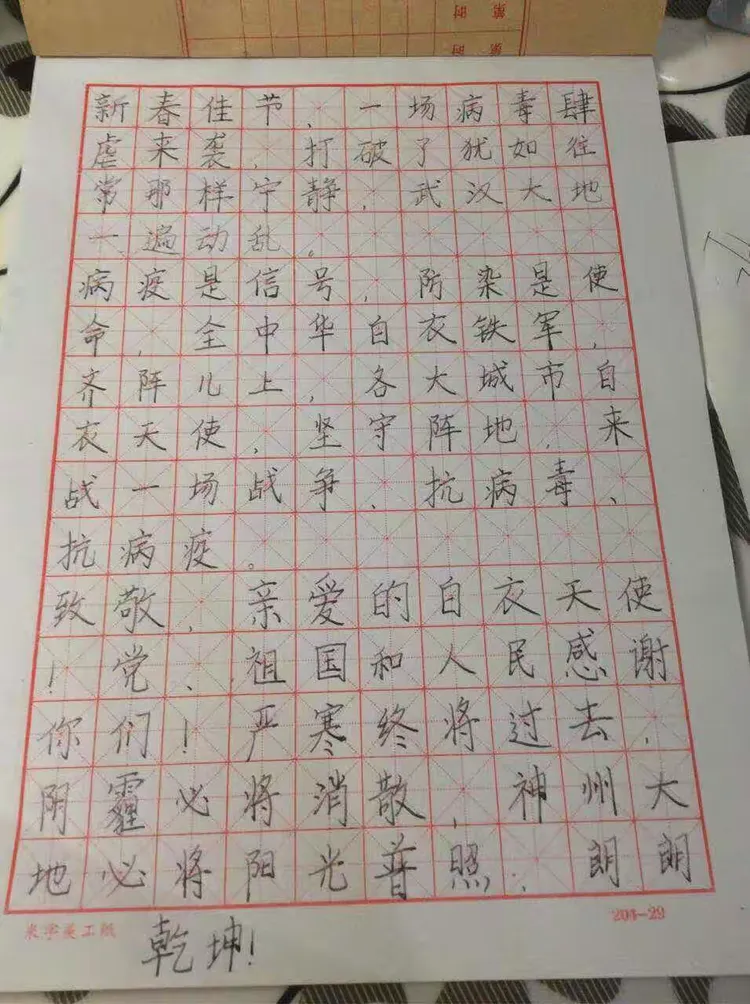 新春佳节，一场病毒肆
虐来袭，打破了犹如往
常那样宁静，武汉大地
一遍动乱。
病疫是信号，防染是使
命，全中华白衣铁军，
齐阵儿上，各大城市白
衣天使，坚守阵地，来
战一场战争、抗病毒、
抗病疫。
致敬，亲爱的白衣天使
！党、祖国和人民感谢
你们！严寒终将过去，
阴霾必将消散，神州大
地必将阳光普照，朗朗
米字美工纸 204-29
乾坤！